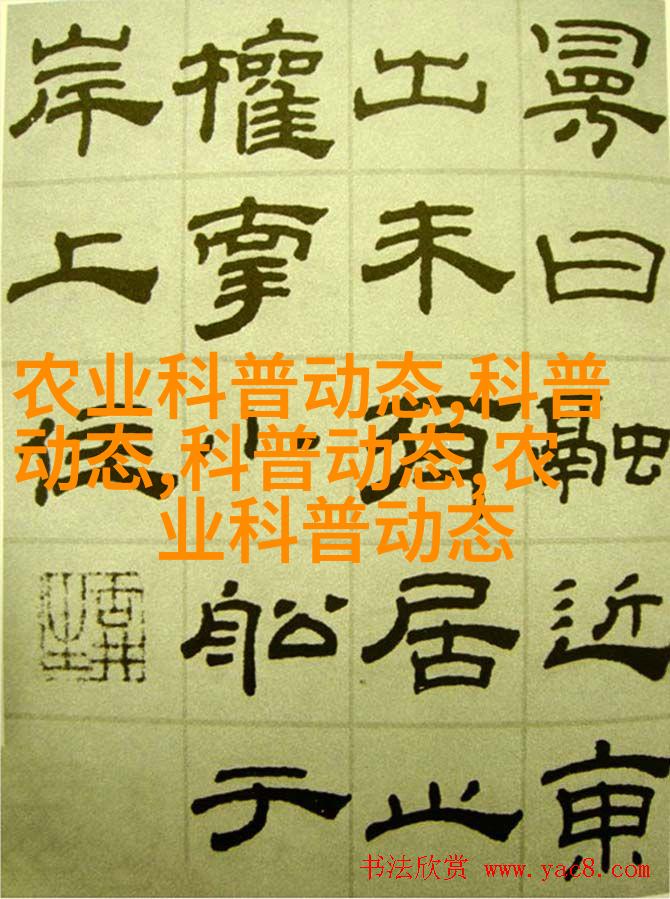 曰融近東
出未有居止
權牽小船于
岸上住
农业科普动态,科普
动态,科普动态,农
业科普动态
书法欣赏 www.yac8.com